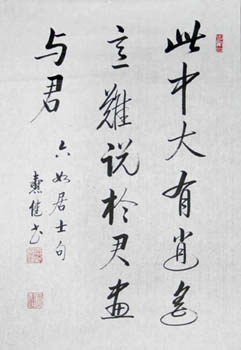 此中大有逍遥
意難说於君画
与君
六如居士句
健书